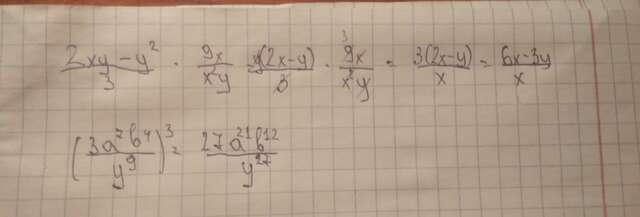 (2xy - y²)/3 · 9x/(x²y) = y(2x-y)/3 · ³9x/(x²y) = 3(2x-y)/x = (6x-3y)/x
(3a⁷b⁴/y⁹)³ = 27a²¹b¹²/y²⁷